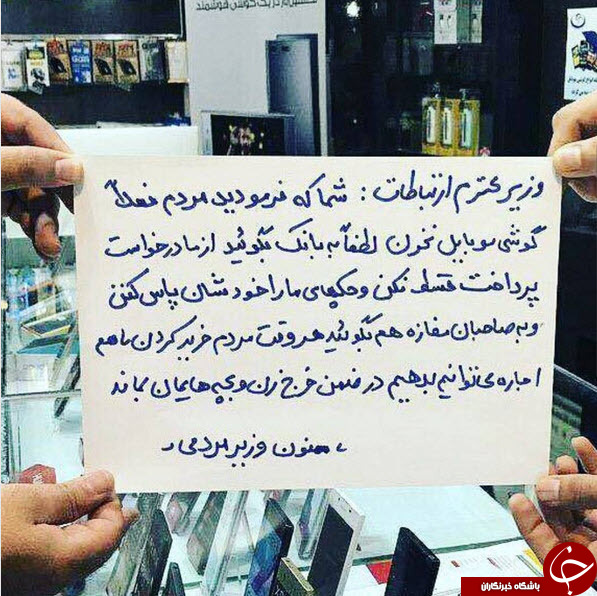 در یک گوشی هوشمند
وزیر محترم ارتباطات : شما که فرمودید مردم فعلاً
گوشی موبایل نخرن لطفاً به بانک بگوئید از ما درخواست
پرداخت قسط نکن و چکهای ما را خودشان پاس کنن
و به صاحبان مغازه هم بگوئید هر وقت مردم خرید کردن ما هم
اجاره می توانیم بدهیم در ضمن خرج زن و بچه هایمان بماند
، ممنون وزیر مردمی ،
باشگاه خبرنگاران